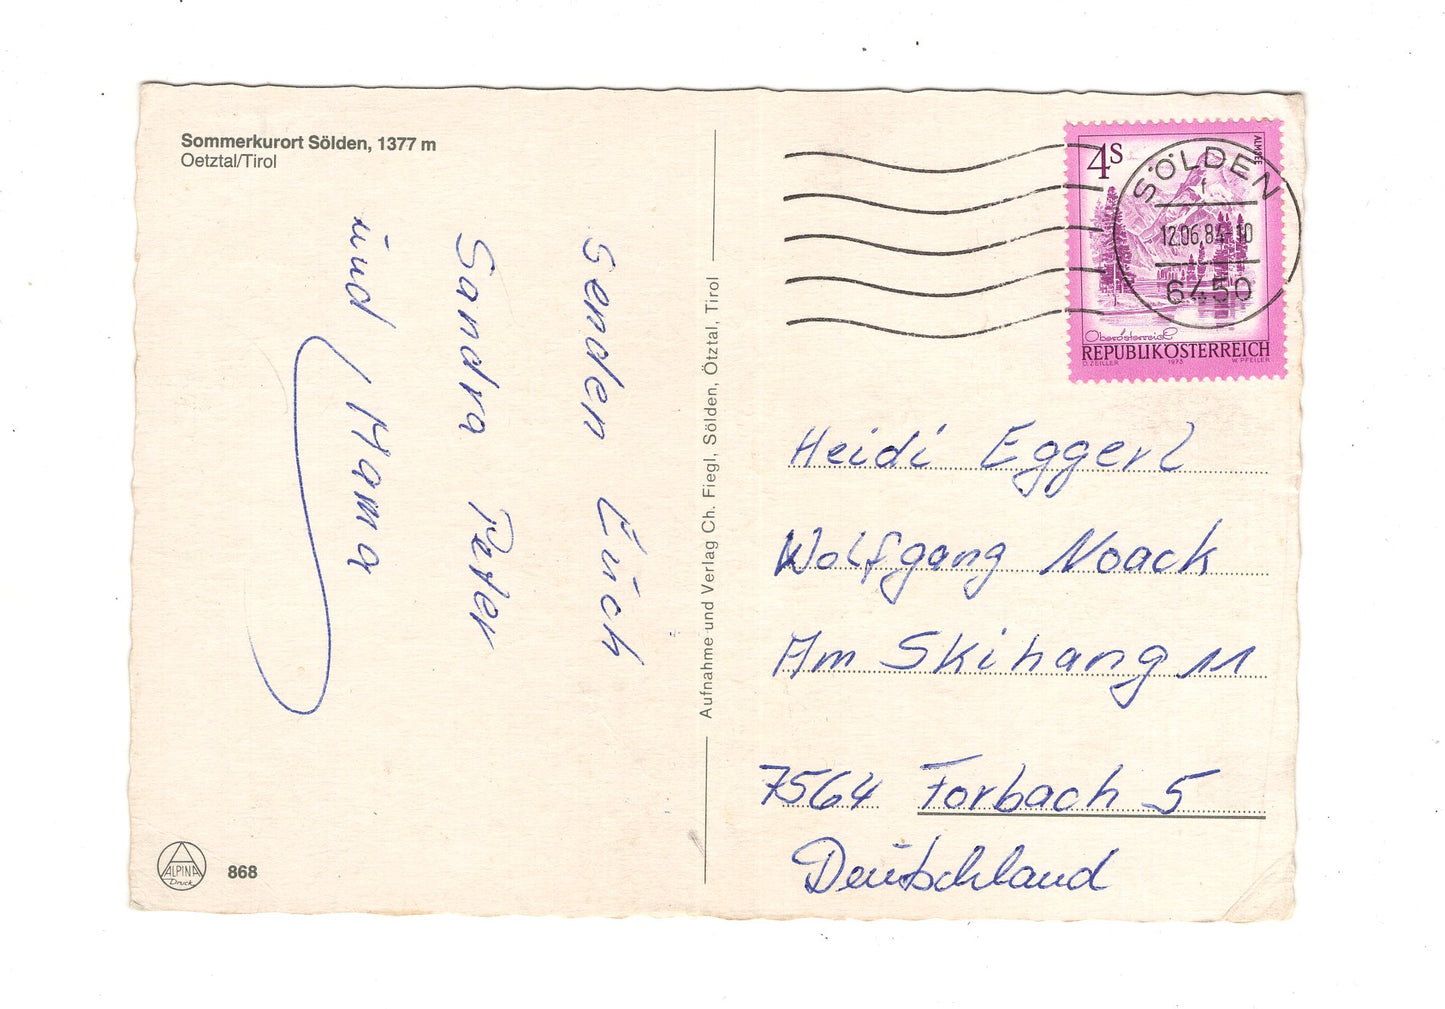 Sommerkurort Sölden, 1377 m
Oetztal/Tirol
senden Euch
Sandra Peter
und Mama
ALPINA
Druck
868
Aufnahme und Verlag Ch. Fiegl, Sölden, Ötztal, Tirol
4S
ALMSEE
Oberösterreich
REPUBLIK ÖSTERREICH
O. ZEILLER 1973 W. PFEILER
SÖLDEN
f
12.06.84-10
6450
Heidi Eggerl
Wolfgang Noack
Am Skihang 11
7564 Forbach 5
Deutschland